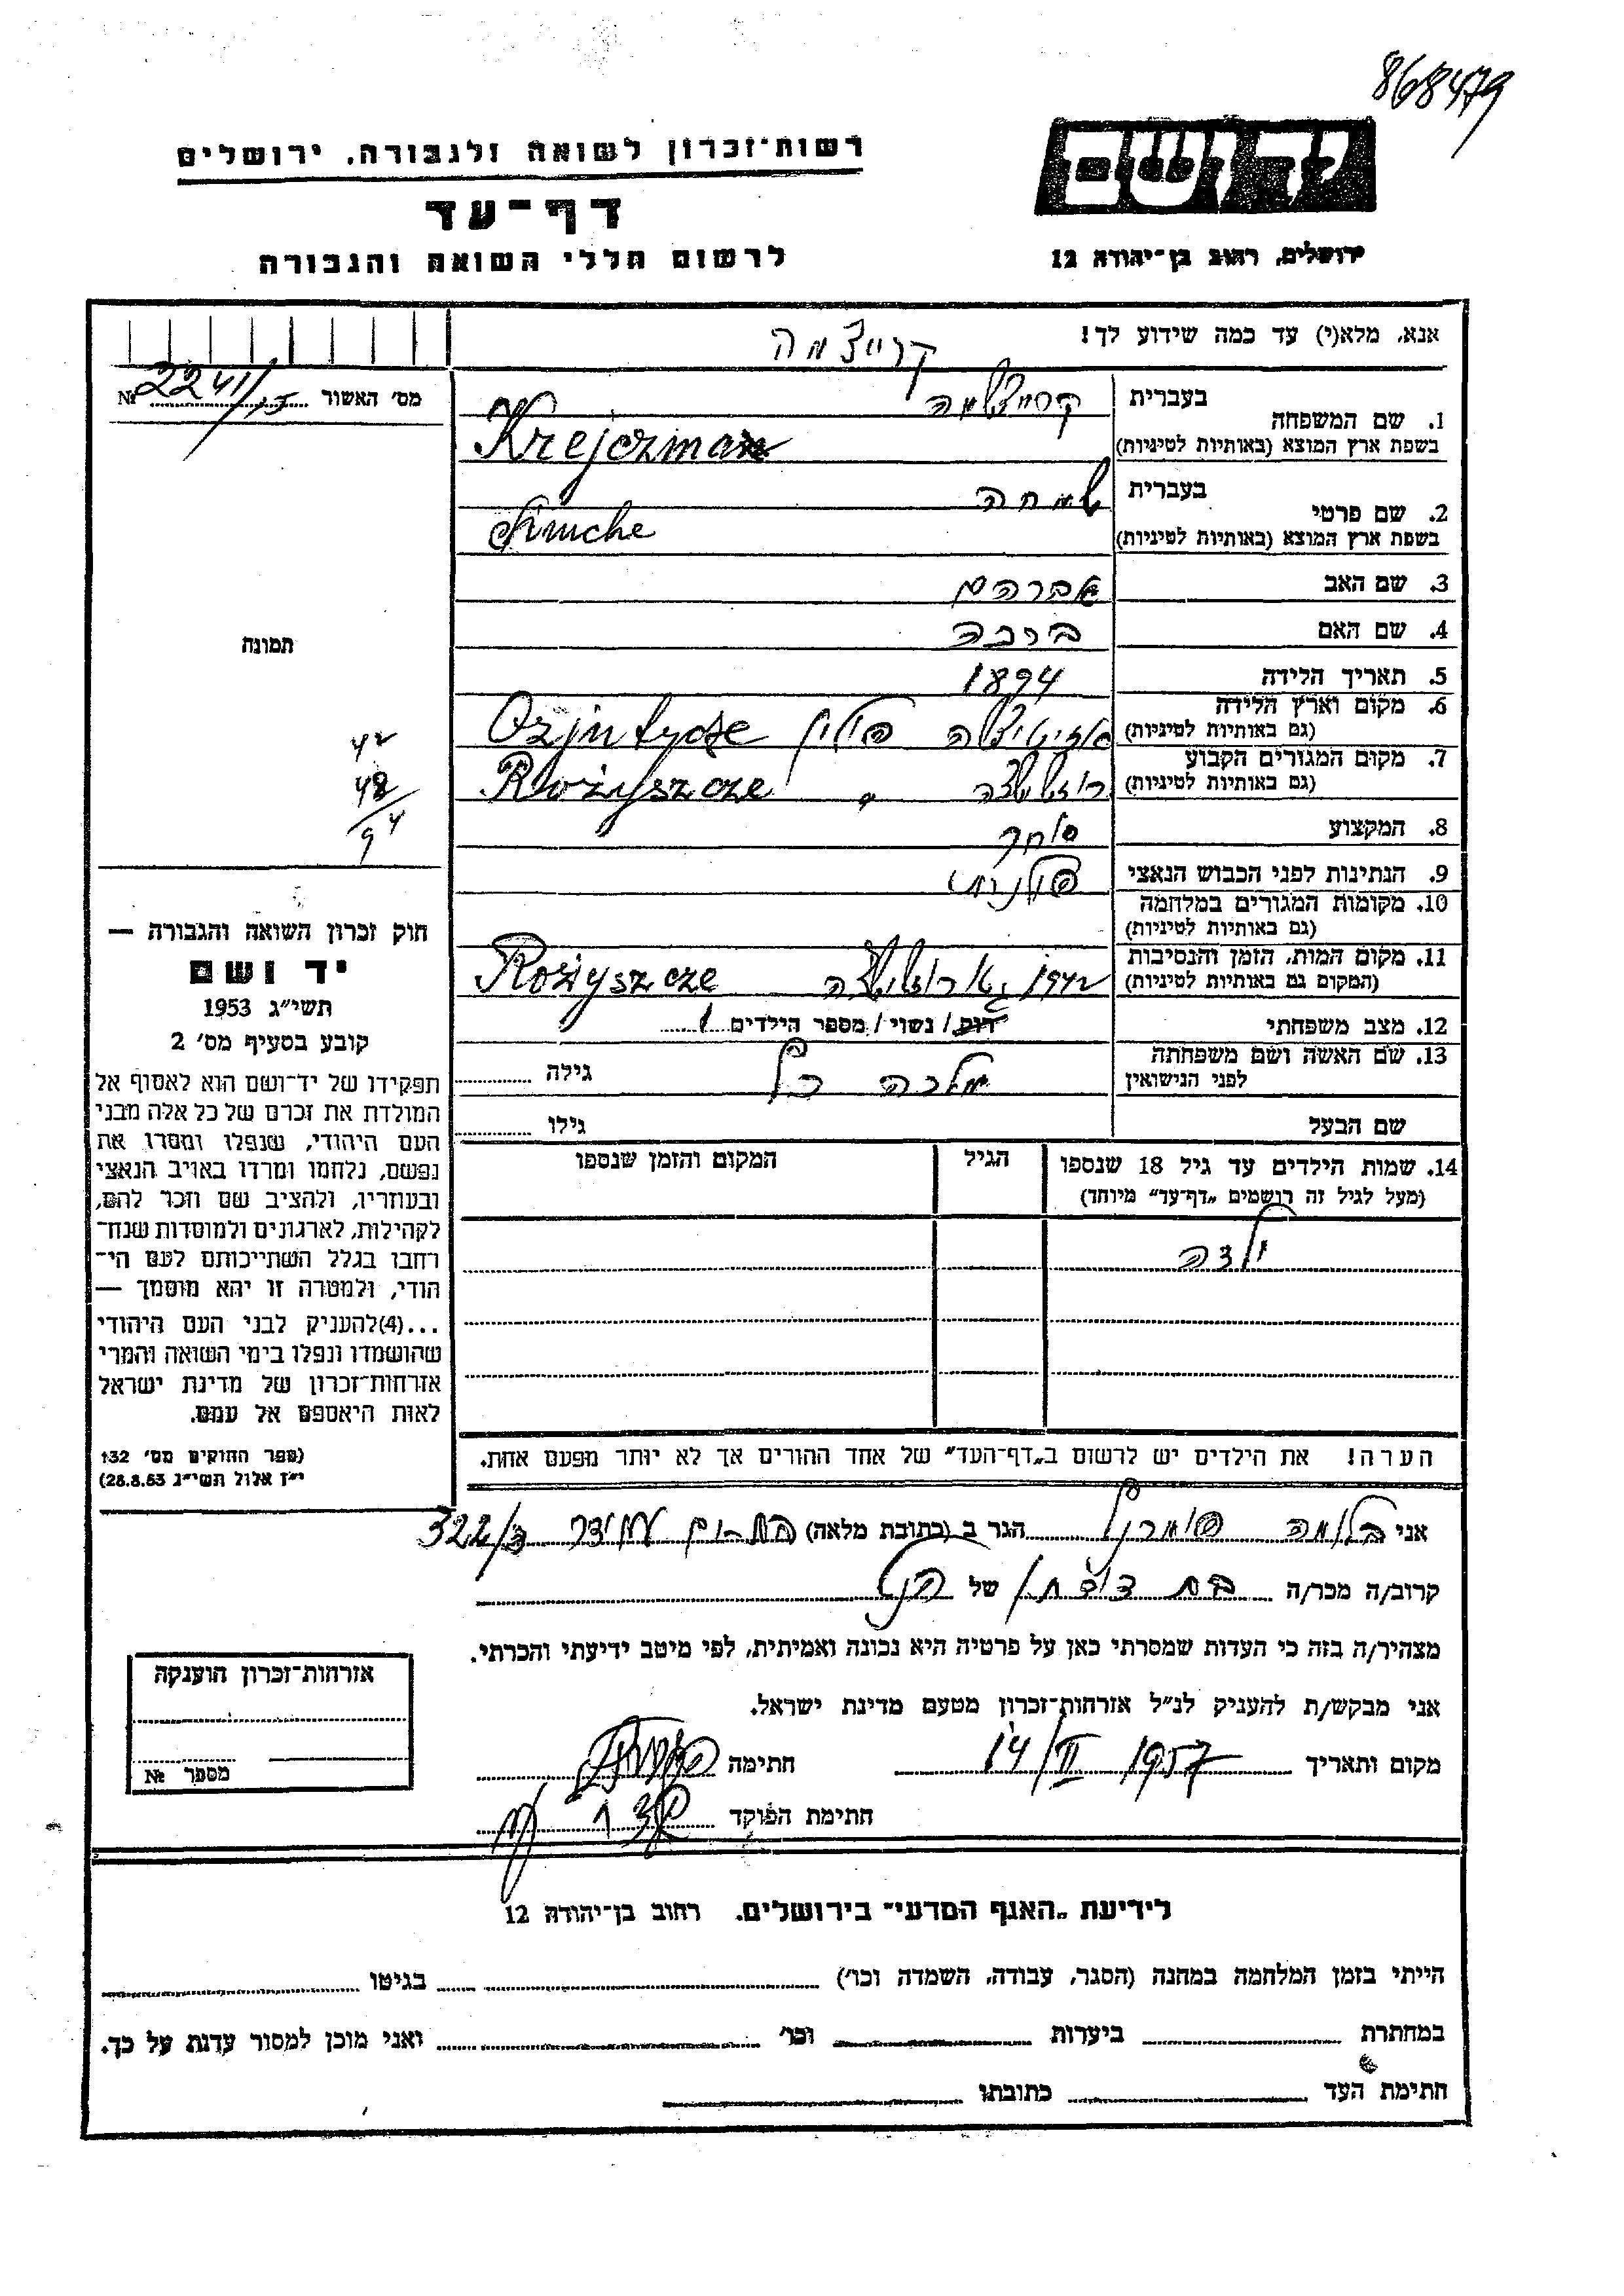 868479
יד ושם
רשות־זכרון לשואה ולגבורה, ירושלים
דף־עד
ירושלים, רחוב בן־יהודה 12
לרשום חללי השואה והגבורה
אנא, מלא(י) עד כמה שידוע לך!
קרייצמה
מס׳ האשור 2241/15 №
1. שם המשפחה
בעברית
בשפת ארץ המוצא (באותיות לטיניות) Krejczman
2. שם פרטי
בעברית שמחה
בשפת ארץ המוצא (באותיות לטיניות) Simche
3. שם האב אברהם
4. שם האם ברכה
5. תאריך הלידה 1894
6. מקום וארץ הלידה
(גם באותיות לטיניות) פולין
7. מקום המגורים הקבוע
(גם באותיות לטיניות) רוזישצה " Rożyszcze
8. המקצוע סוחר
9. הנתינות לפני הכבוש הנאצי פולנית
10. מקומות המגורים במלחמה
(גם באותיות לטיניות)
11. מקום המות, הזמן והנסיבות
(המקום גם באותיות לטיניות) 1942 רוזישצה Rożyszcze
12. מצב משפחתי רווק / נשוי / מספר הילדים 1
13. שם האשה ושם משפחתה
לפני הנישואין מלכה גילה
שם הבעל גילו
תמונה
42
48
94
חוק זכרון השואה והגבורה —
יד ושם
תשי״ג 1953
קובע בסעיף מס׳ 2
תפקידו של יד־ושם הוא לאסוף אל
המולדת את זכרם של כל אלה מבני
העם היהודי, שנפלו ומסרו את
נפשם, נלחמו ומרדו באויב הנאצי
ובעוזריו, ולהציב שם וזכר להם,
לקהילות, לארגונים ולמוסדות שנח־
רבו בגלל השתייכותם לעם הי־
הודי, ולמטרה זו יהא מוסמך —
...(4)להעניק לבני העם היהודי
שהושמדו ונפלו בימי השואה והמרי
אזרחות־זכרון של מדינת ישראל
לאות היאספם אל עמם.
(ספר החוקים מס׳ 132
י״ז אלול תשי״ג 28.8.53)
14. שמות הילדים עד גיל 18 שנספו
(מעל לגיל זה רושמים „דף־עד״ מיוחד)
הגיל
המקום והזמן שנספו
ילדה
הערה! את הילדים יש לרשום ב„דף־העד״ של אחד ההורים אך לא יותר מפעם אחת.
אני הגר ב (כתובת מלאה) 322/3
קרוב/ה מכר/ה בת דודתו של הנ״ל
מצהיר/ה בזה כי העדות שמסרתי כאן על פרטיה היא נכונה ואמיתית, לפי מיטב ידיעתי והכרתי.
אני מבקש/ת להעניק לנ״ל אזרחות־זכרון מטעם מדינת ישראל.
מקום ותאריך 14/II 1957 חתימה
חתימת הפוקד
אזרחות־זכרון הוענקה
מספר №
לידיעת „האגף המדעי״ בירושלים, רחוב בן־יהודה 12
הייתי בזמן המלחמה במחנה (הסגר, עבודה, השמדה וכו׳) בגיטו
במחתרת ביערות וכו׳ ואני מוכן למסור עדות על כך.
חתימת העד כתובתו